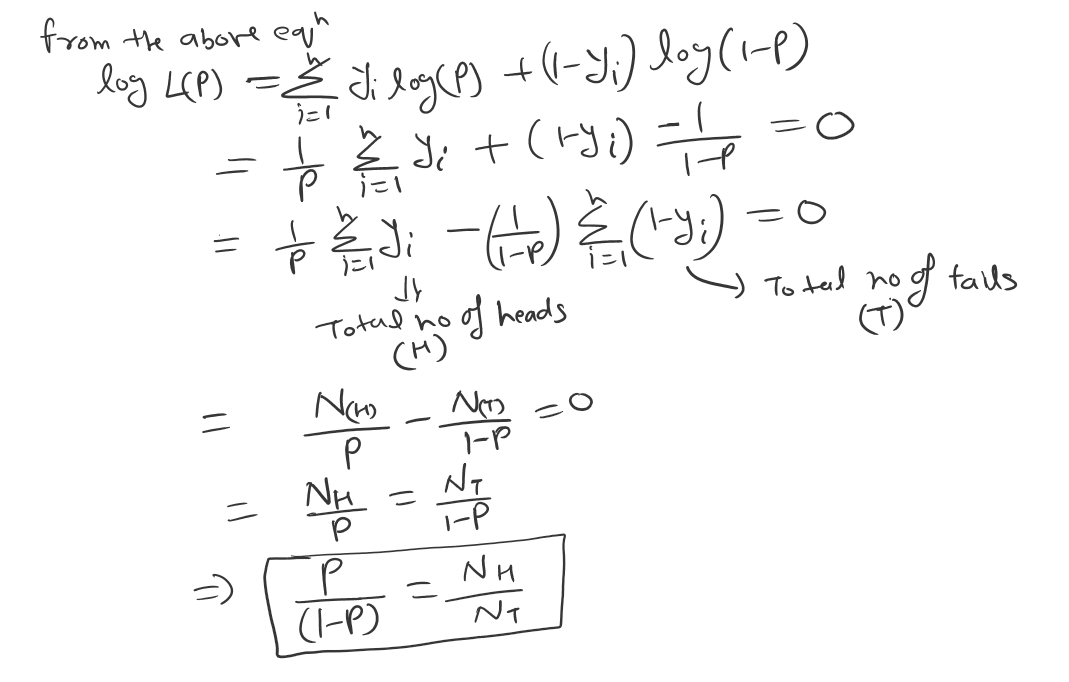 from the above eqⁿ
log L(P) = Σⁿᵢ₌₁ yᵢ log(P) + (1-yᵢ) log(1-P)
= 1/P Σⁿᵢ₌₁ yᵢ + (1-yᵢ) -1/1-P = 0
= 1/P Σⁿᵢ₌₁ yᵢ - (1/1-P) Σⁿᵢ₌₁ (1-yᵢ) = 0
↓ Total no of heads (H)
→ Total no of tails (T)
= N(H)/P - N(T)/1-P = 0
= N_H/P = N_T/1-P
⇒ P/(1-P) = N_H/N_T